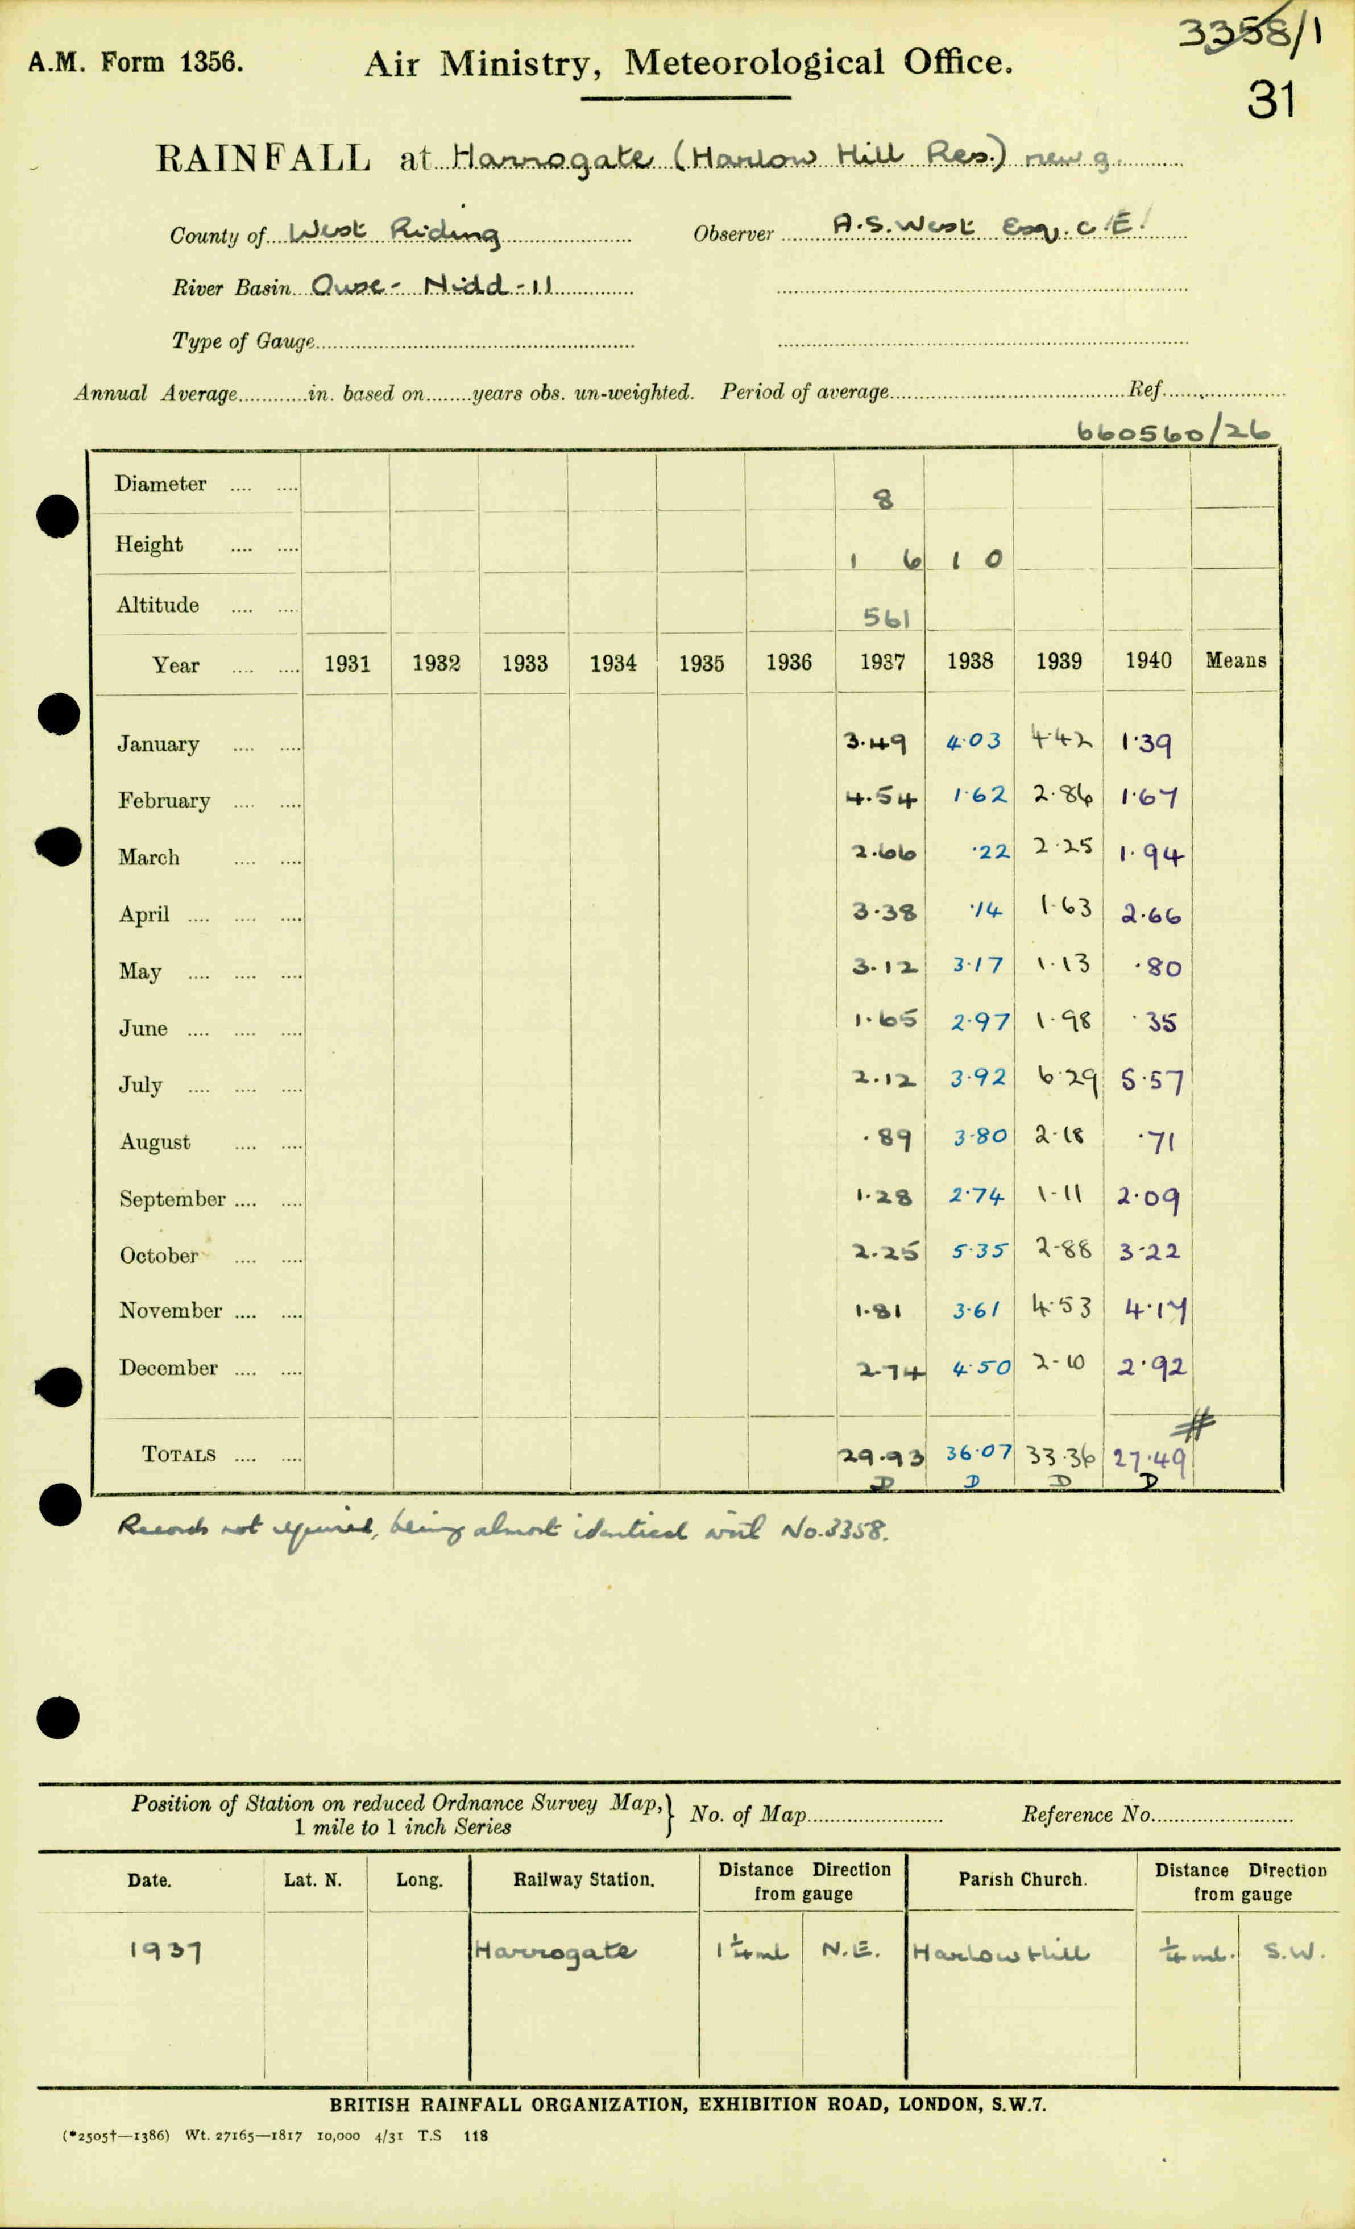 3358/1
A.M. Form 1356. Air Ministry, Meteorological Office.
31
RAINFALL at Harrogate (Harlow Hill Res.) new g.
County of West Riding Observer A.S. West Esq. C.E.
River Basin Ouse - Nidd - 11
Type of Gauge
Annual Average in. based on years obs. un-weighted. Period of average Ref.
660560/26
Diameter 8
Height 1 6 1 0
Altitude 561
Year 1931 1932 1933 1934 1935 1936 1937 1938 1939 1940 Means
January 3.49 4.03 4.42 1.39
February 4.54 1.62 2.86 1.67
March 2.66 .22 2.25 1.94
April 3.38 .14 1.63 2.66
May 3.12 3.17 1.13 .80
June 1.65 2.97 1.98 .35
July 2.12 3.92 6.29 5.57
August .89 3.80 2.18 .71
September 1.28 2.74 1.11 2.09
October 2.25 5.35 2.88 3.22
November 1.81 3.61 4.53 4.17
December 2.74 4.50 2.10 2.92
#
TOTALS 29.93 36.07 33.36 27.49
D D D D
Records not required, being almost identical with No. 3358.
Position of Station on reduced Ordnance Survey Map, } No. of Map Reference No.
1 mile to 1 inch Series
Date. Lat. N. Long. Railway Station. Distance Direction from gauge Parish Church. Distance Direction from gauge
1937 Harrogate 1 1/4 ml N.E. Harlow Hill 1/4 ml. S.W.
BRITISH RAINFALL ORGANIZATION, EXHIBITION ROAD, LONDON, S.W.7.
(*2505†—1386) Wt. 27165—1817 10,000 4/31 T.S 118